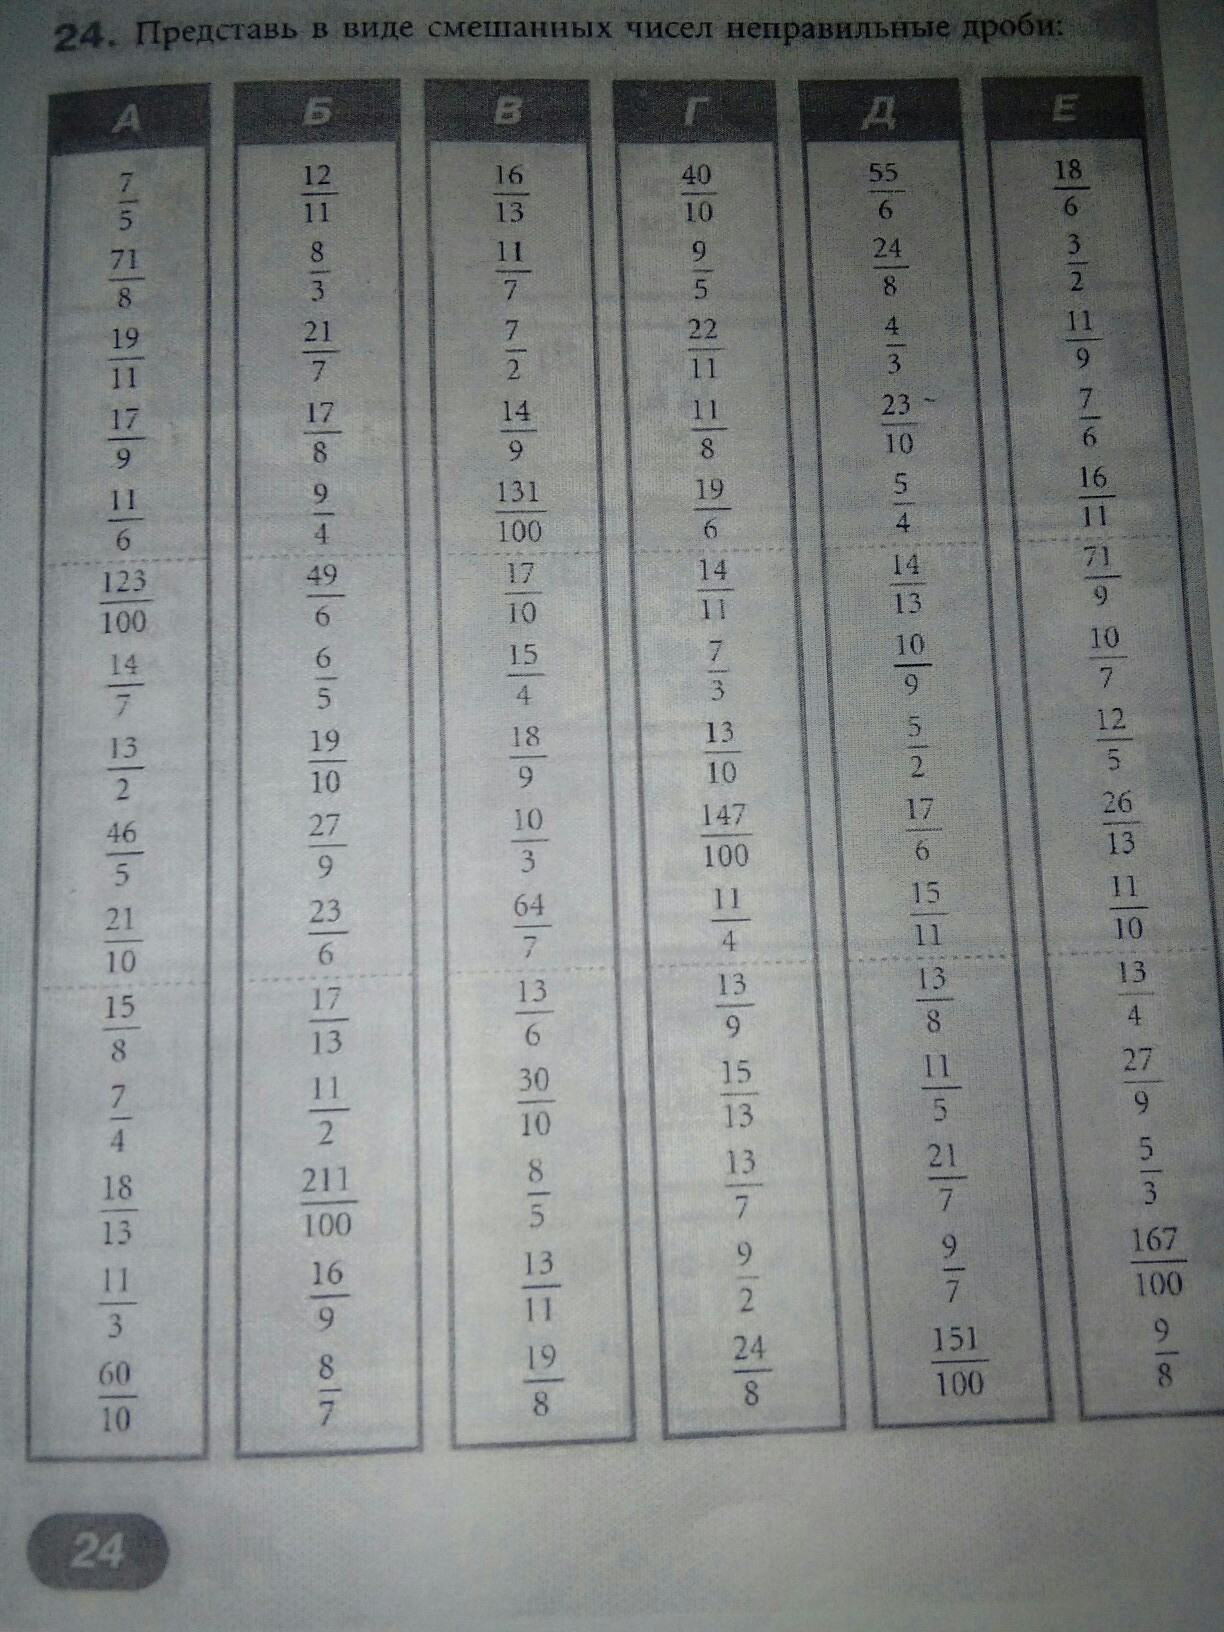 24. Представь в виде смешанных чисел неправильные дроби:
А Б В Г Д Е
7/5 12/11 16/13 40/10 55/6 18/6
71/8 8/3 11/7 9/5 24/8 3/2
19/11 21/7 7/2 22/11 4/3 11/9
17/9 17/8 14/9 11/8 23/10 7/6
11/6 9/4 131/100 19/6 5/4 16/11
123/100 49/6 17/10 14/11 14/13 71/9
14/7 6/5 15/4 7/3 10/9 10/7
13/2 19/10 18/9 13/10 5/2 12/5
46/5 27/9 10/3 147/100 17/6 26/13
21/10 23/6 64/7 11/4 15/11 11/10
15/8 17/13 13/6 13/9 13/8 13/4
7/4 11/2 30/10 15/13 11/5 27/9
18/13 211/100 8/5 13/7 21/7 5/3
11/3 16/9 13/11 9/2 9/7 167/100
60/10 8/7 19/8 24/8 151/100 9/8
24